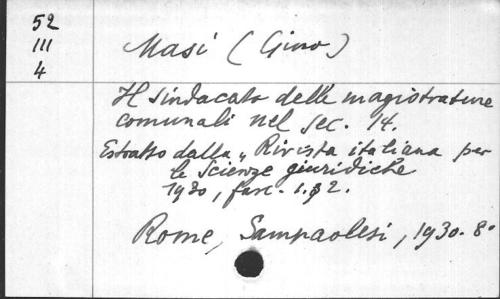 52
III
4
Masi (Gino)
Il sindacato delle magistrature
comunali nel sec. 14.
Estratto dalla „Rivista italiana per
le Scienze giuridiche
1930, fasc. 1. & 2.
Rome, Sampaolesi, 1930. 8°